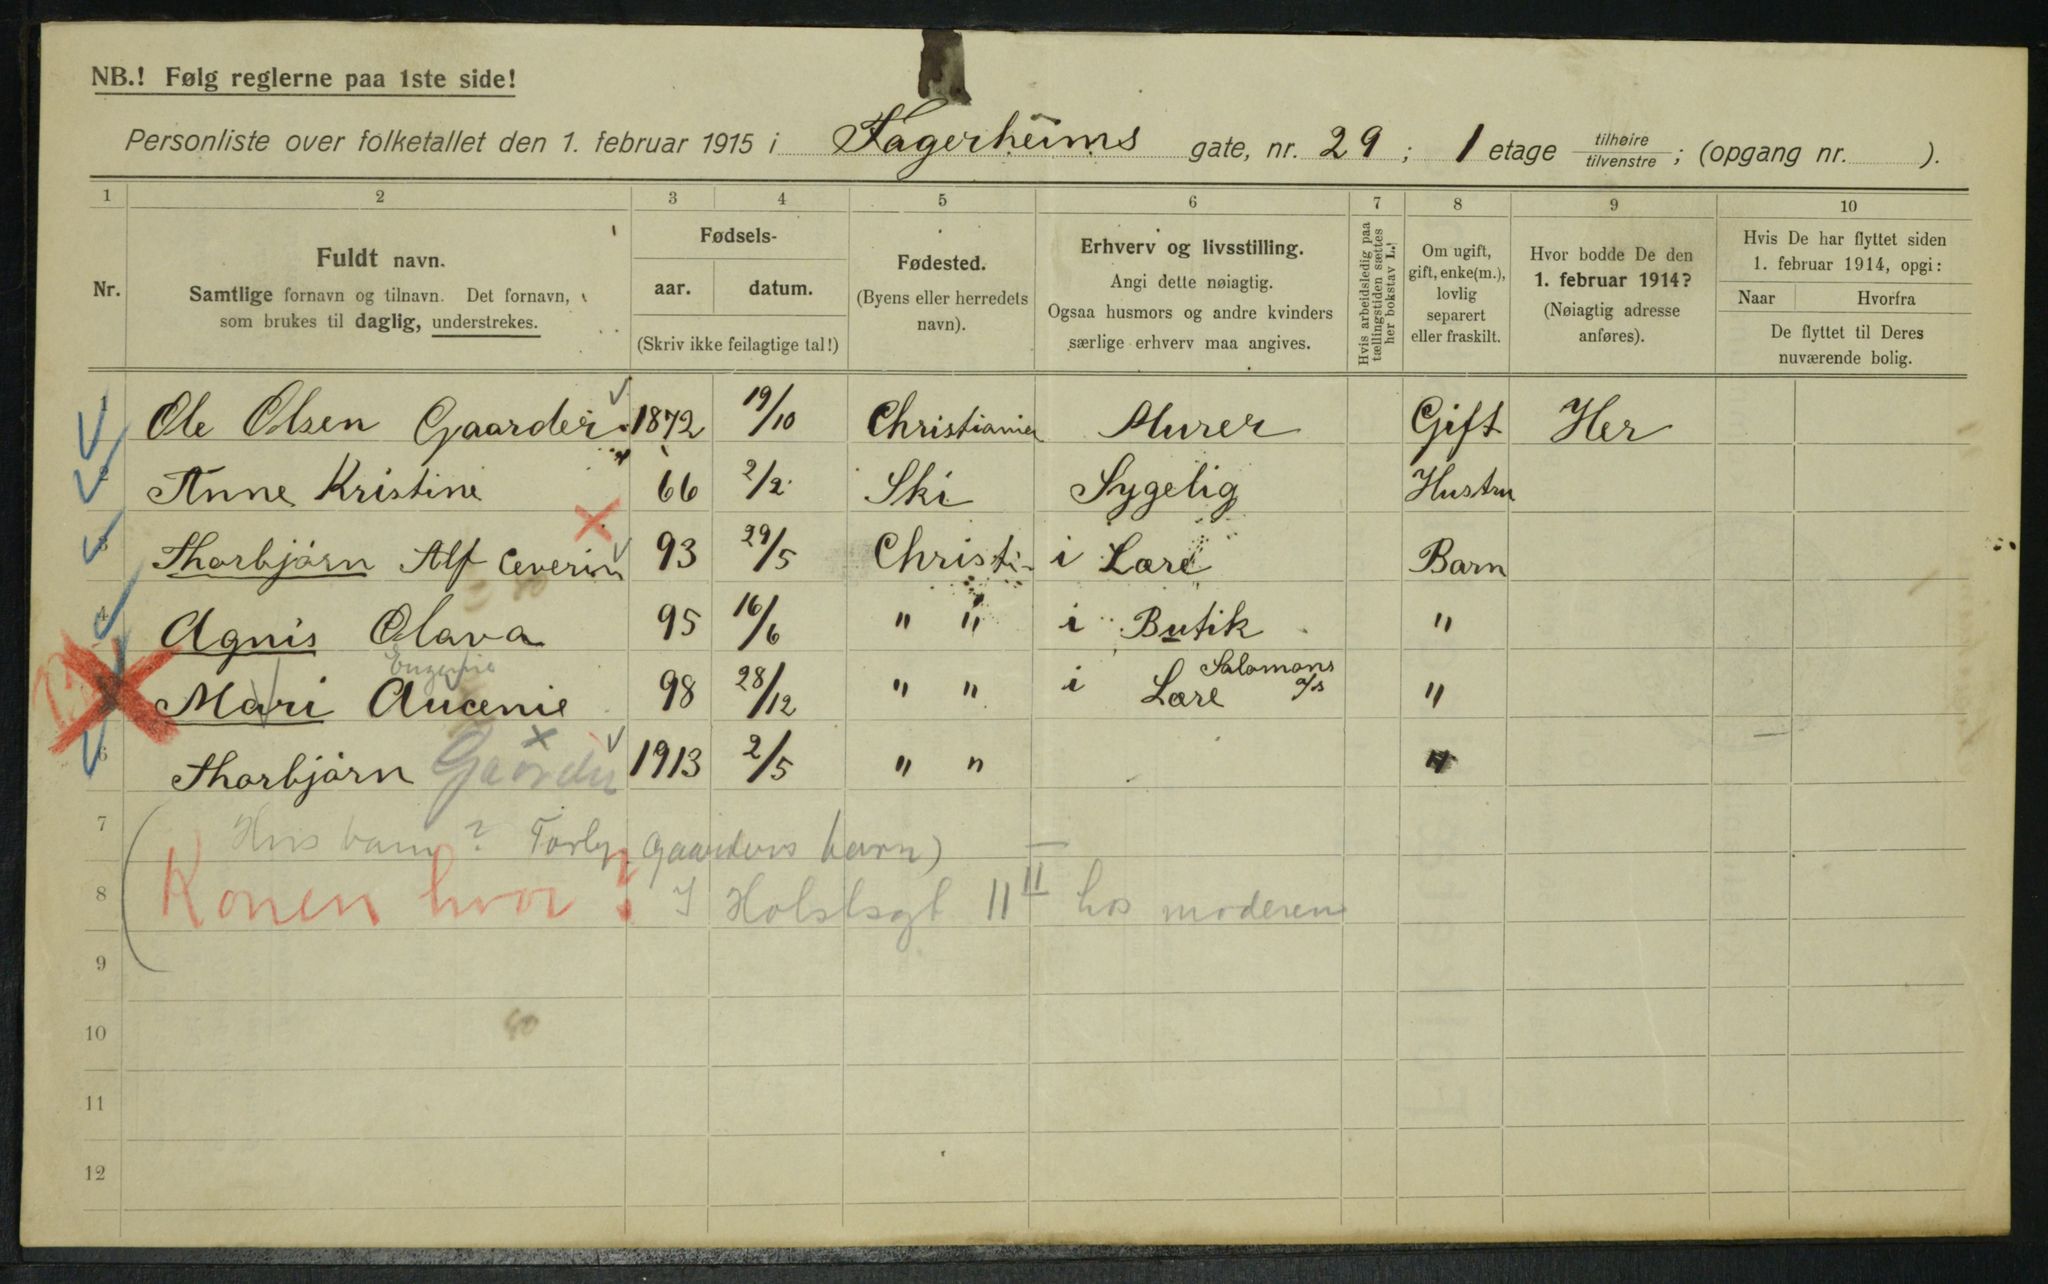 NB.! Følg reglerne paa 1ste side!
Personliste over folketallet den 1. februar 1915 i Fagerheims gate, nr. 29 ; 1 etage tilhøire tilvenstre ; (opgang nr. ).
1 2 3 4 5 6 7 8 9 10
Nr.
Fuldt navn.
Samtlige fornavn og tilnavn. Det fornavn,
som brukes til daglig, understrekes.
Fødsels-
aar. datum.
(Skriv ikke feilagtige tal!)
Fødested.
(Byens eller herredets
navn).
Erhverv og livsstilling.
Angi dette nøiagtig.
Ogsaa husmors og andre kvinders
særlige erhverv maa angives.
Hvis arbeidsledig paa
tællingstiden sættes
her bokstav L.!
Om ugift,
gift, enke(m.),
lovlig
separert
eller fraskilt.
Hvor bodde De den
1. februar 1914?
(Nøiagtig adresse
anføres).
Hvis De har flyttet siden
1. februar 1914, opgi:
Naar Hvorfra
De flyttet til Deres
nuværende bolig.
1 Ole Olsen Gaarder 1872 19/10 Christiania Murer Gift Her
2 Anne Kristine 66 2/2 Ski Sygelig Hustru
3 Thorbjørn Alf Ceverin 93 29/5 Christi- i Lære Barn
4 Agnis Olava 95 16/6 " " i Butik "
Eugenie
Mari Aucenie 98 28/12 " " i Lære Salomons a/s "
6 Thorbjørn Gaarder 1913 2/5 " " "
7 Hvis barn? Torbj. Gaarders barn)
8 Konen hvor? I Holstsgt 11 II hos moderen
9
10
11
12